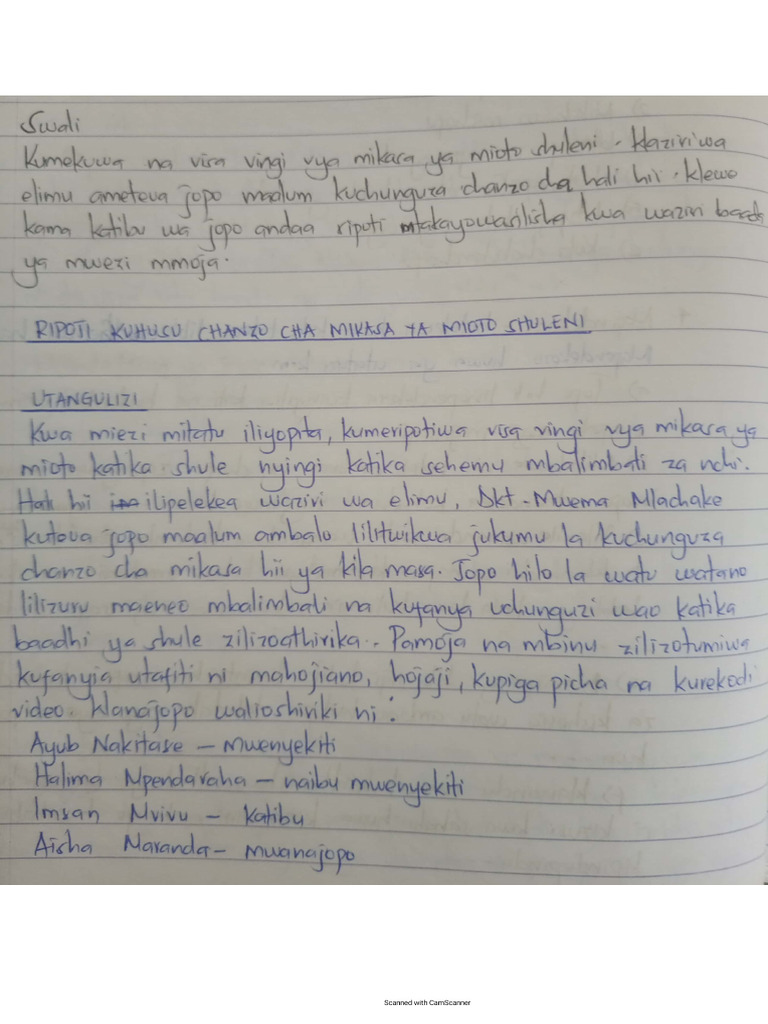 Swali
Kumekuwa na visa vingi vya mikasa ya mioto shuleni. Waziri wa
elimu ameteua jopo maalum kuchunguza chanzo cha hali hii. Wewe
kama katibu wa jopo andaa ripoti utakayowasilisha kwa waziri baada
ya mwezi mmoja.
RIPOTI KUHUSU CHANZO CHA MIKASA YA MIOTO SHULENI
UTANGULIZI
Kwa miezi mitatu iliyopita, kumeripotiwa visa vingi vya mikasa ya
mioto katika shule nyingi katika sehemu mbalimbali za nchi.
Hali hii ilipelekea waziri wa elimu, Dkt. Mwema Mlachake
kuteua jopo maalum ambalo lilitwikwa jukumu la kuchunguza
chanzo cha mikasa hii ya kila mara. Jopo hilo la watu watano
lilizuru maeneo mbalimbali na kufanya uchunguzi wao katika
baadhi ya shule zilizoathirika. Pamoja na mbinu zilizotumiwa
kufanyia utafiti ni mahojiano, hojaji, kupiga picha na kurekodi
video. Wanajopo walioshiriki ni:
Ayub Nakitare - Mwenyekiti
Halima Mpendaraha - naibu mwenyekiti
Imran Mvivu - Katibu
Aisha Maranda - Mwanajopo
Scanned with CamScanner